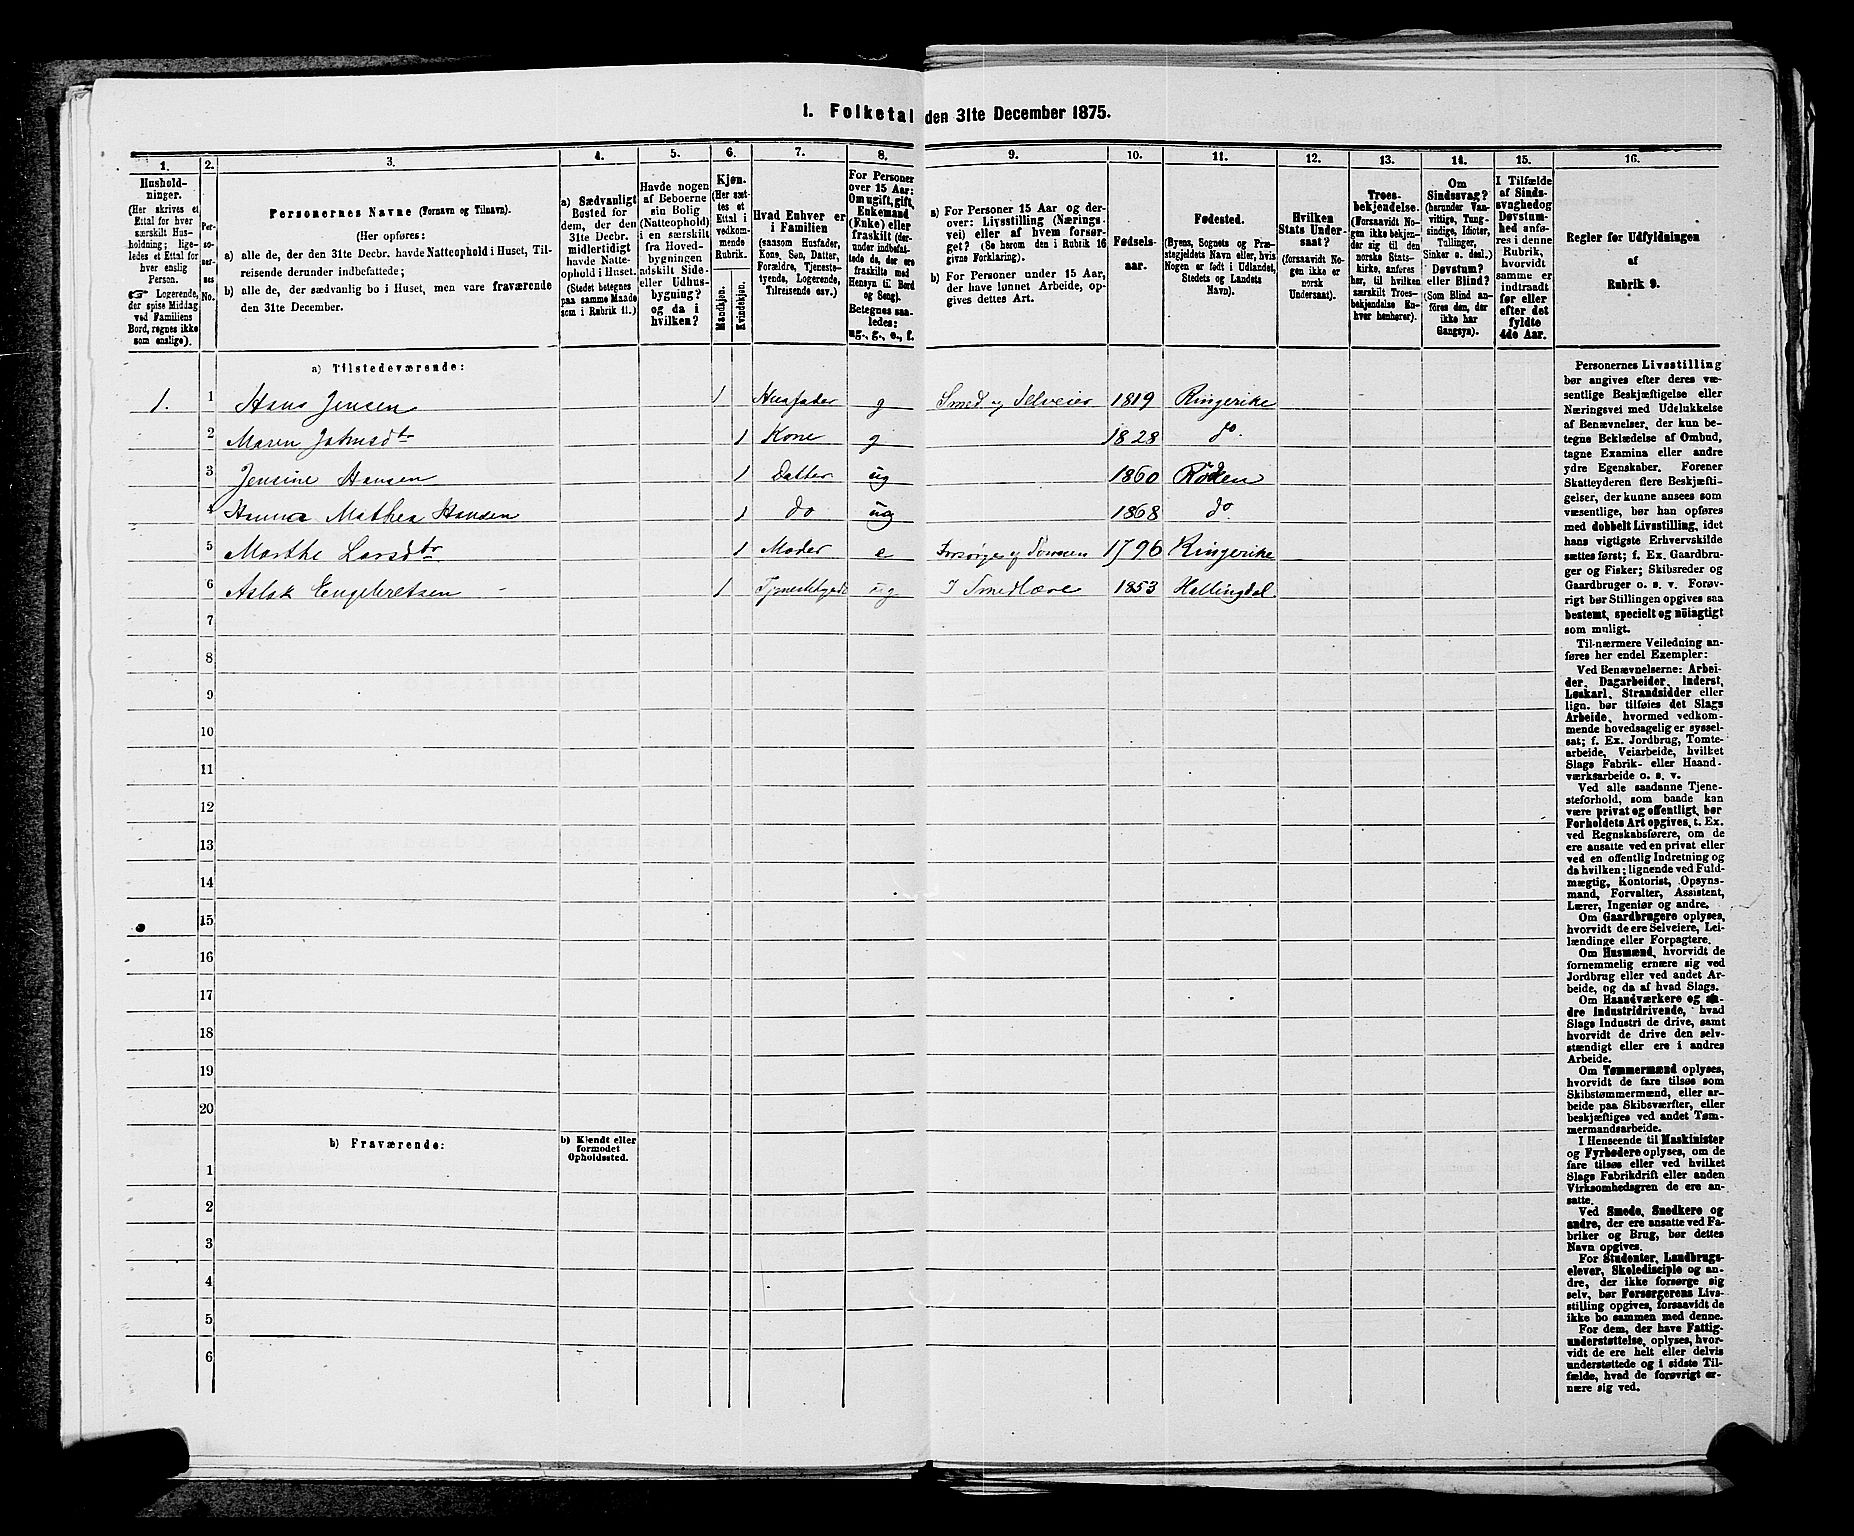 1. Folketal den 31te December 1875.
1. 2. 3. 4. 5. 6. 7. 8. 9. 10. 11. 12. 13. 14. 15. 16.
Hushold-
ninger.
(Her skrives et
Ettal for hver
særskilt Hus-
holdning; lige-
ledes et Ettal for
hver enslig
Person.
☞ Logerende,
der spise Middag
ved Familiens
Bord, regnes ikke
som enslige.)
Per-
so-
ner-
nes
No.
Personernes Navne (Fornavn og Tilnavn).
(Her opføres:
a) alle de, der den 31te Decbr. havde Natteophold i Huset, Til-
reisende derunder indbefattede;
b) alle de, der sædvanlig bo i Huset, men vare fraværende
den 31te December.
a) Sædvanligt
Bosted for
dem, der den
31te Decbr.
midlertidigt
havde Natte-
ophold i Huset.
(Stedet betegnes
paa samme Maade
som i Rubrik 11.)
Havde nogen
af Beboerne
sin Bolig
(Natteophold)
i en særskilt
fra Hoved-
bygningen
adskilt Side-
eller Udhus-
bygning?
og da i
hvilken?
Kjøn.
(Her sæt-
tes et
Ettal i
vedkom-
mende
Rubrik.
Mandkjøn.
Kvindekjøn.
Hvad Enhver er
i Familien
(saasom Husfader,
Kone, Søn, Datter,
Forældre, Tjeneste-
tyende, Logerende,
Tilreisende osv.)
For Personer
over 15 Aar:
Om ugift, gift,
Enkemand
(Enke) eller
fraskilt (der-
under indbefat-
tede de, der ere
fraskilte med
Hensyn til Bord
og Seng).
Betegnes saa-
ledes:
ug., g., e., f.
a) For Personer 15 Aar og der-
over: Livsstilling (Nærings-
vei) eller af hvem forsør-
get? (Se herom den i Rubrik 16
givne Forklaring).
b) For Personer under 15 Aar,
der have lønnet Arbeide, op-
gives dettes Art.
Fødsels-
aar.
Fødested.
(Byens, Sognets og Præ-
stegjeldets Navn eller, hvis
Nogen er født i Udlandet,
Stedets og Landets
Navn).
Hvilken
Stats Under-
saat?
(forsaavidt No-
gen ikke er
norsk
Undersaat).
Troes-
bekjendelse.
(Forsaavidt No-
gen ikke bekjen-
der sig til den
norske Stats-
kirke, anføres
her, til hvilken
særskilt Troes-
bekjendelse En-
hver henhører).
Om
Sindssvag?
(herunder Van-
vittige, Tung-
sindige, Idioter,
Tullinger,
Sinker o. desl.)
Døvstum?
eller Blind?
(Som Blind an-
føres den, der
ikke har
Gangsyn).
I Tilfælde
af Sinds-
svaghed og
Døvstum-
hed anfø-
res i denne
Rubrik,
hvorvidt
samme er
indtraadt
før eller
efter det
fyldte
4de Aar.
Regler for Udfyldningen
af
Rubrik 9.
a) Tilstedeværende:
1. 1 Hans Jensen 1 Husfader g Smed og Selveier 1819 Ringerike
2 Maren Johnsdtr 1 Kone g 1828 do.
3 Jensine Hansen 1 Datter ug 1860 Røken
4 Hanna Mathea Hansen 1 do ug 1868 do
5 Marthe Larsdtr 1 Moder e Forsørges af Sønnen 1796 Ringerike
6 Aslak Engebretsen 1 ug I Smedlære 1853 Hallingdal
7
8
9
10
11
12
13
14
15
16
17
18
19
20
b) Fraværende:
b) Kjendt eller
formodet
Opholdssted.
1
2
3
4
5
6
Personernes Livsstilling
bør angives efter deres væ-
sentlige Beskjæftigelse eller
Næringsvei med Udelukkelse
af Benævnelser, der kun be-
tegne Beklædelse af Ombud,
tagne Examina eller andre
ydre Egenskaber. Forener
Skatteyderen flere Beskjæfti-
gelser, der kunne ansees som
væsentlige, bør han opføres
med dobbelt Livsstilling, idet
hans vigtigste Erhvervskilde
sættes først; f. Ex. Gaardbru-
ger og Fisker; Skibsreder og
Gaardbruger o. s. v. Forøv-
rigt bør Stillingen opgives saa
bestemt, specielt og nöiagtigt
som muligt.
Til nærmere Veiledning an-
føres her endel Exempler:
Ved Benævnelserne: Arbei-
der, Dagarbeider, Inderst,
Løskarl, Strandsidder eller
lign. bør tilføies det Slags
Arbeide, hvormed vedkom-
mende hovedsagelig er syssel-
sat; f. Ex. Jordbrug, Tomte-
arbeide, Veiarbeide, hvilket
Slags Fabrik- eller Haand-
værksarbeide o. s. v.
Ved alle saadanne Tjene-
steforhold, som baade kan
være privat og offentligt, bør
Forholdets Art opgives, t. Ex.
ved Regnskabsførere, om de
ere ansatte ved en privat eller
ved en offentlig Indretning og
da hvilken; lignende ved Fuld-
mægtig, Kontorist, Opsyns-
mand, Forvalter, Assistent,
Lærer, Ingeniør og andre.
Om Gaardbrugere oplyses,
hvorvidt de ere Selveiere, Lei-
lændinge eller Forpagtere.
Om Husmænd, hvorvidt de
fornemmelig ernære sig ved
Jordbrug eller ved andet Ar-
beide, og da af hvad Slags.
Om Haandværkere og an-
dre Industridrivende, hvad
Slags Industri de drive, samt
hvorvidt de drive den selv-
stændigt eller ere i andres
Arbeide.
Om Tømmermænd oplyses,
hvorvidt de fare tilsøs som
Skibstømmermænd, eller ar-
beide paa Skibsværfter, eller
beskjæftiges ved andet Tøm-
mermandsarbeide.
I Henseende til Maskinister
og Fyrbødere oplyses, om de
fare tilsøs eller ved hvilket
Slags Fabrikdrift eller anden
Virksomhedsgren de ere an-
satte.
Ved Smede, Snedkere og
andre, der ere ansatte ved Fa-
briker og Brug, bør dettes
Navn opgives.
For Studenter, Landbrugs-
elever, Skoledisciple og an-
dre, der ikke forsørge sig
selv, bør Forsørgerens Livs-
stilling opgives, forsaavidt de
ikke bo sammen med denne.
For dem, der have Fattig-
understøttelse, oplyses, hvor-
vidt de ere helt eller delvis
understøttede og i sidste Til-
fælde, hvad de forøvrigt er-
nære sig ved.